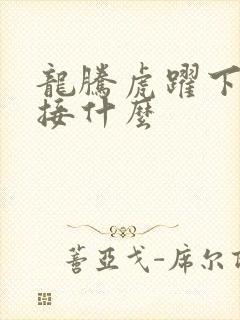 龍騰虎躍下
接什麼
蓍亞戈-席尔